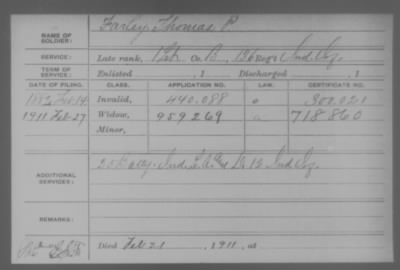 NAME OF SOLDIER: Farley, Thomas P.
SERVICE: Late rank, Pvt. Co. B, 126 Reg't Ind. Inf.
TERM OF SERVICE: Enlisted , 1 Discharged , 1
DATE OF FILING. CLASS. APPLICATION NO. LAW. CERTIFICATE NO.
Feb-14 Invalid, 440.088 300.021
1911 Feb-27 Widow, 959269 a 718860
Minor,
ADDITIONAL SERVICES: 25 Batty. Ind. L.A. & D. 13 Ind. Inf.
REMARKS:
Died Feb 21 , 1911, at